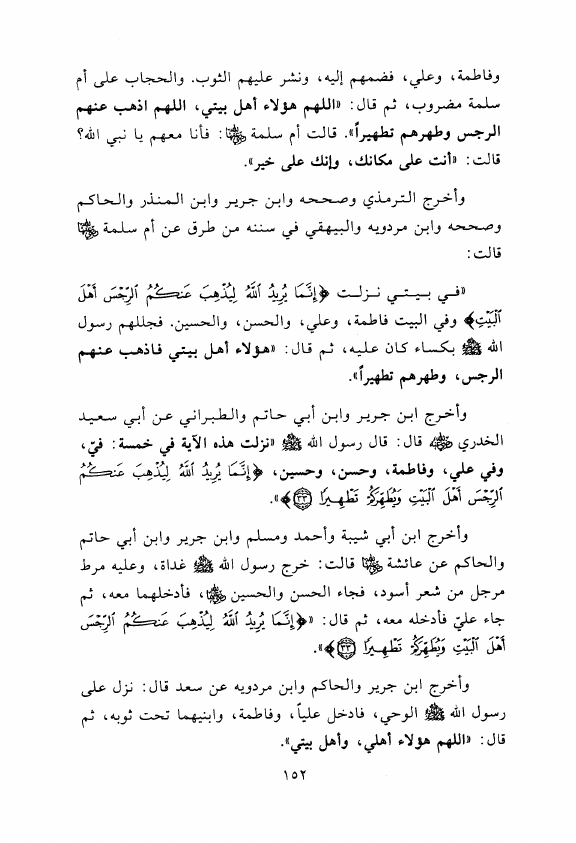 وفاطمة، وعلي، فضمهم إليه، ونشر عليهم الثوب. والحجاب على أم
سلمة مضروب، ثم قال: «اللهم هؤلاء أهل بيتي، اللهم اذهب عنهم
الرجس وطهرهم تطهيراً». قالت أم سلمة رضي الله عنها: فأنا معهم يا نبي الله؟
قالت: «أنت على مكانك، وإنك على خير».
وأخرج الترمذي وصححه وابن جرير وابن المنذر والحاكم
وصححه وابن مردويه والبيهقي في سننه من طرق عن أم سلمة رضي الله عنها
قالت:
«في بيتي نزلت ﴿إِنَّمَا يُرِيدُ اللَّهُ لِيُذْهِبَ عَنكُمُ الرِّجْسَ أَهْلَ
الْبَيْتِ﴾ وفي البيت فاطمة، وعلي، والحسن، والحسين. فجللهم رسول
الله ﷺ بكساء كان عليه، ثم قال: «هؤلاء أهل بيتي فاذهب عنهم
الرجس، وطهرهم تطهيراً».
وأخرج ابن جرير وابن أبي حاتم والطبراني عن أبي سعيد
الخدري رضي الله عنه قال: قال رسول الله ﷺ «نزلت هذه الآية في خمسة: فيّ،
وفي علي، وفاطمة، وحسن، وحسين، ﴿إِنَّمَا يُرِيدُ اللَّهُ لِيُذْهِبَ عَنكُمُ
الرِّجْسَ أَهْلَ الْبَيْتِ وَيُطَهِّرَكُمْ تَطْهِيرًا ٣٣﴾».
وأخرج ابن أبي شيبة وأحمد ومسلم وابن جرير وابن أبي حاتم
والحاكم عن عائشة رضي الله عنها قالت: خرج رسول الله ﷺ غداة، وعليه مرط
مرجل من شعر أسود، فجاء الحسن والحسين رضي الله عنهما، فأدخلهما معه، ثم
جاء عليّ فأدخله معه، ثم قال: «﴿إِنَّمَا يُرِيدُ اللَّهُ لِيُذْهِبَ عَنكُمُ الرِّجْسَ
أَهْلَ الْبَيْتِ وَيُطَهِّرَكُمْ تَطْهِيرًا ٣٣﴾».
وأخرج ابن جرير والحاكم وابن مردويه عن سعد قال: نزل على
رسول الله ﷺ الوحي، فادخل علياً، وفاطمة، وابنيهما تحت ثوبه، ثم
قال: «اللهم هؤلاء أهلي، وأهل بيتي».
١٥٢